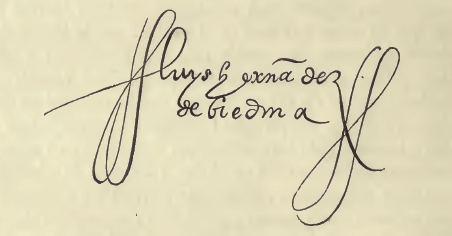 luys hernãdez
de biedma